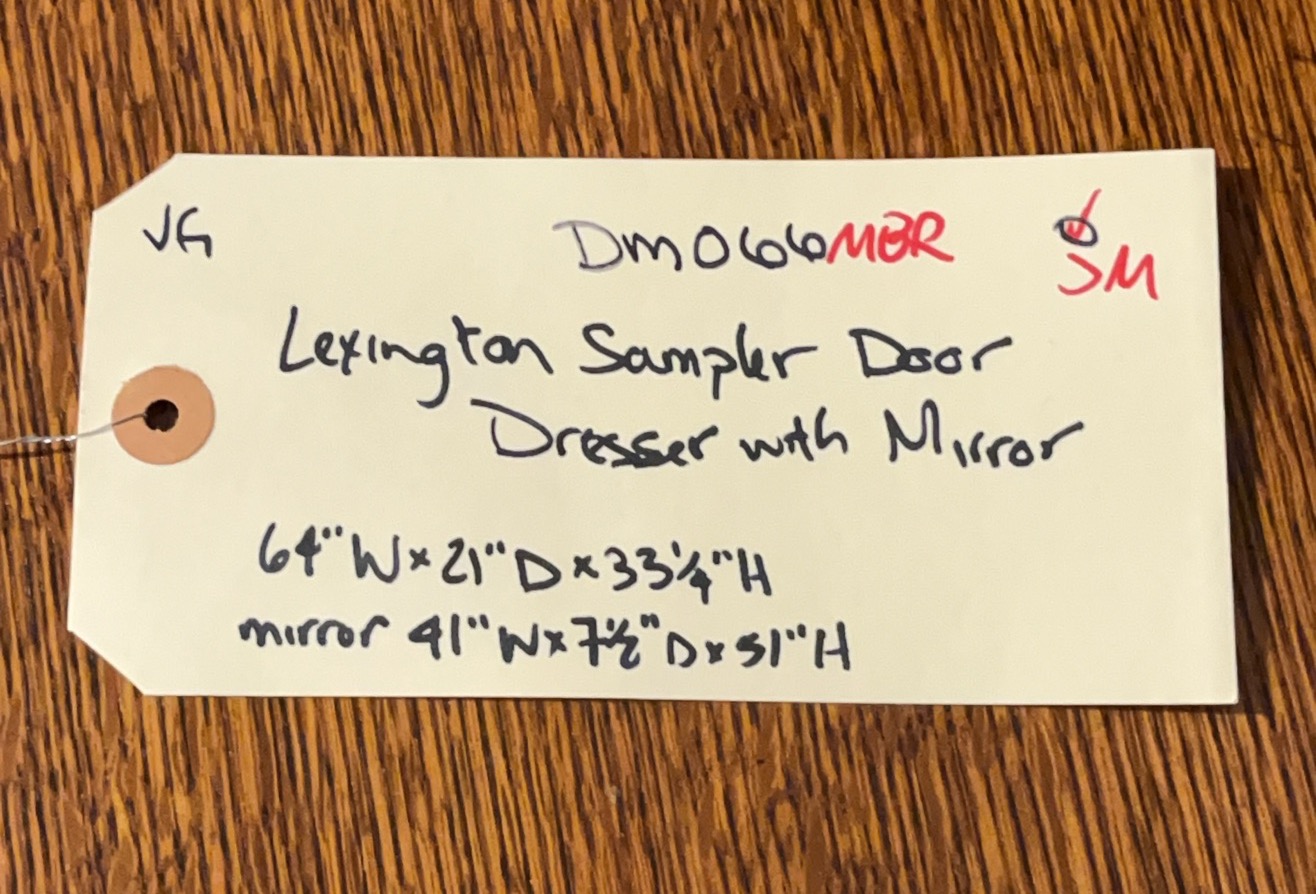 VG
Dm066MBR
JM
Lexington Sampler Door
Dresser with Mirror
64" W x 21" D x 33 1/4" H
mirror 41" W x 7 1/2" D x 51" H